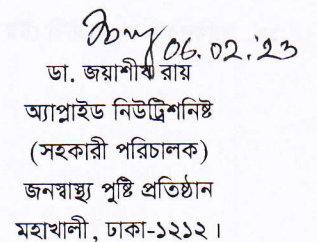 06.02.'23
ডা. জয়াশীষ রায়
অ্যাপ্লাইড নিউট্রিশনিষ্ট
(সহকারী পরিচালক)
জনস্বাস্থ্য পুষ্টি প্রতিষ্ঠান
মহাখালী, ঢাকা-১২১২।